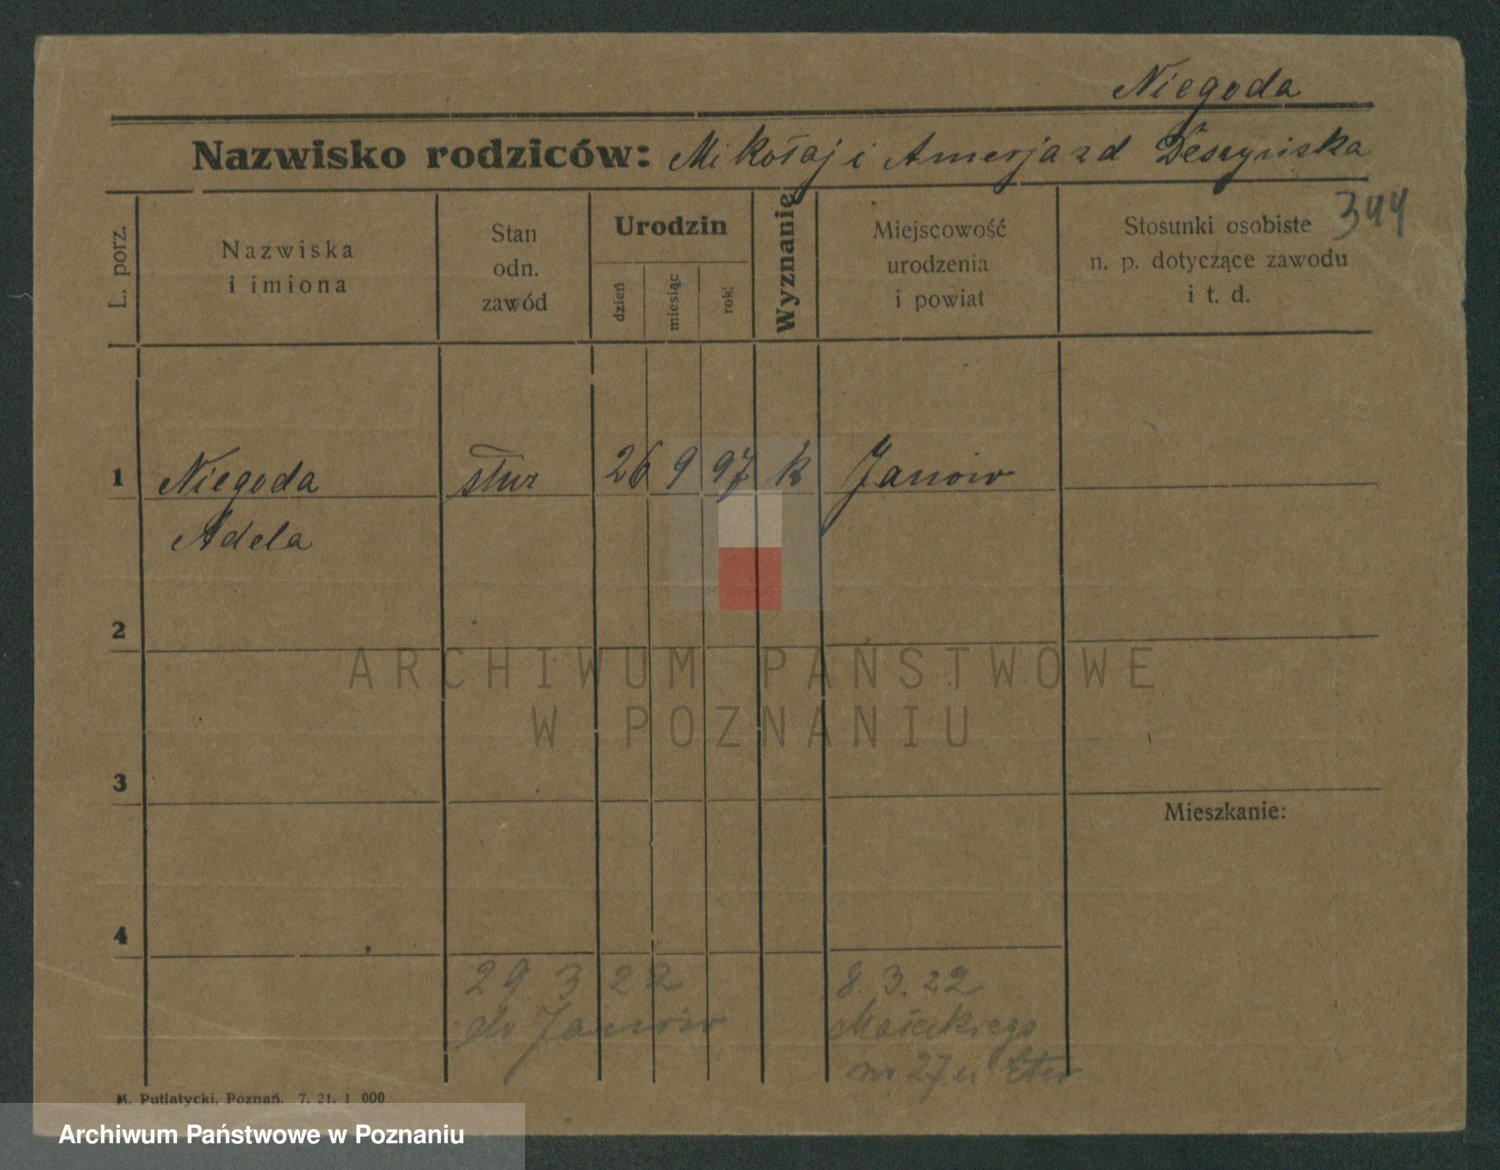 Niegoda
Nazwisko rodziców: Mikołaj i z d
344
L. porz.
Nazwiska
i imiona
Stan
odn.
zawód
Urodzin
dzień
miesiąc
rok
Wyznanie
Miejscowość
urodzenia
i powiat
Stosunki osobiste
n. p. dotyczące zawodu
i t. d.
1 Niegoda służ 26 9 97 k Janów
Adela
2
ARCHIWUM PAŃSTWOWE
W POZNANIU
3
Mieszkanie:
4
29 3 22
do Janów
8.3.22
Małeckiego
nr 27 u
M. Putiatycki, Poznań. 7. 21. 1 000
Archiwum Państwowe w Poznaniu